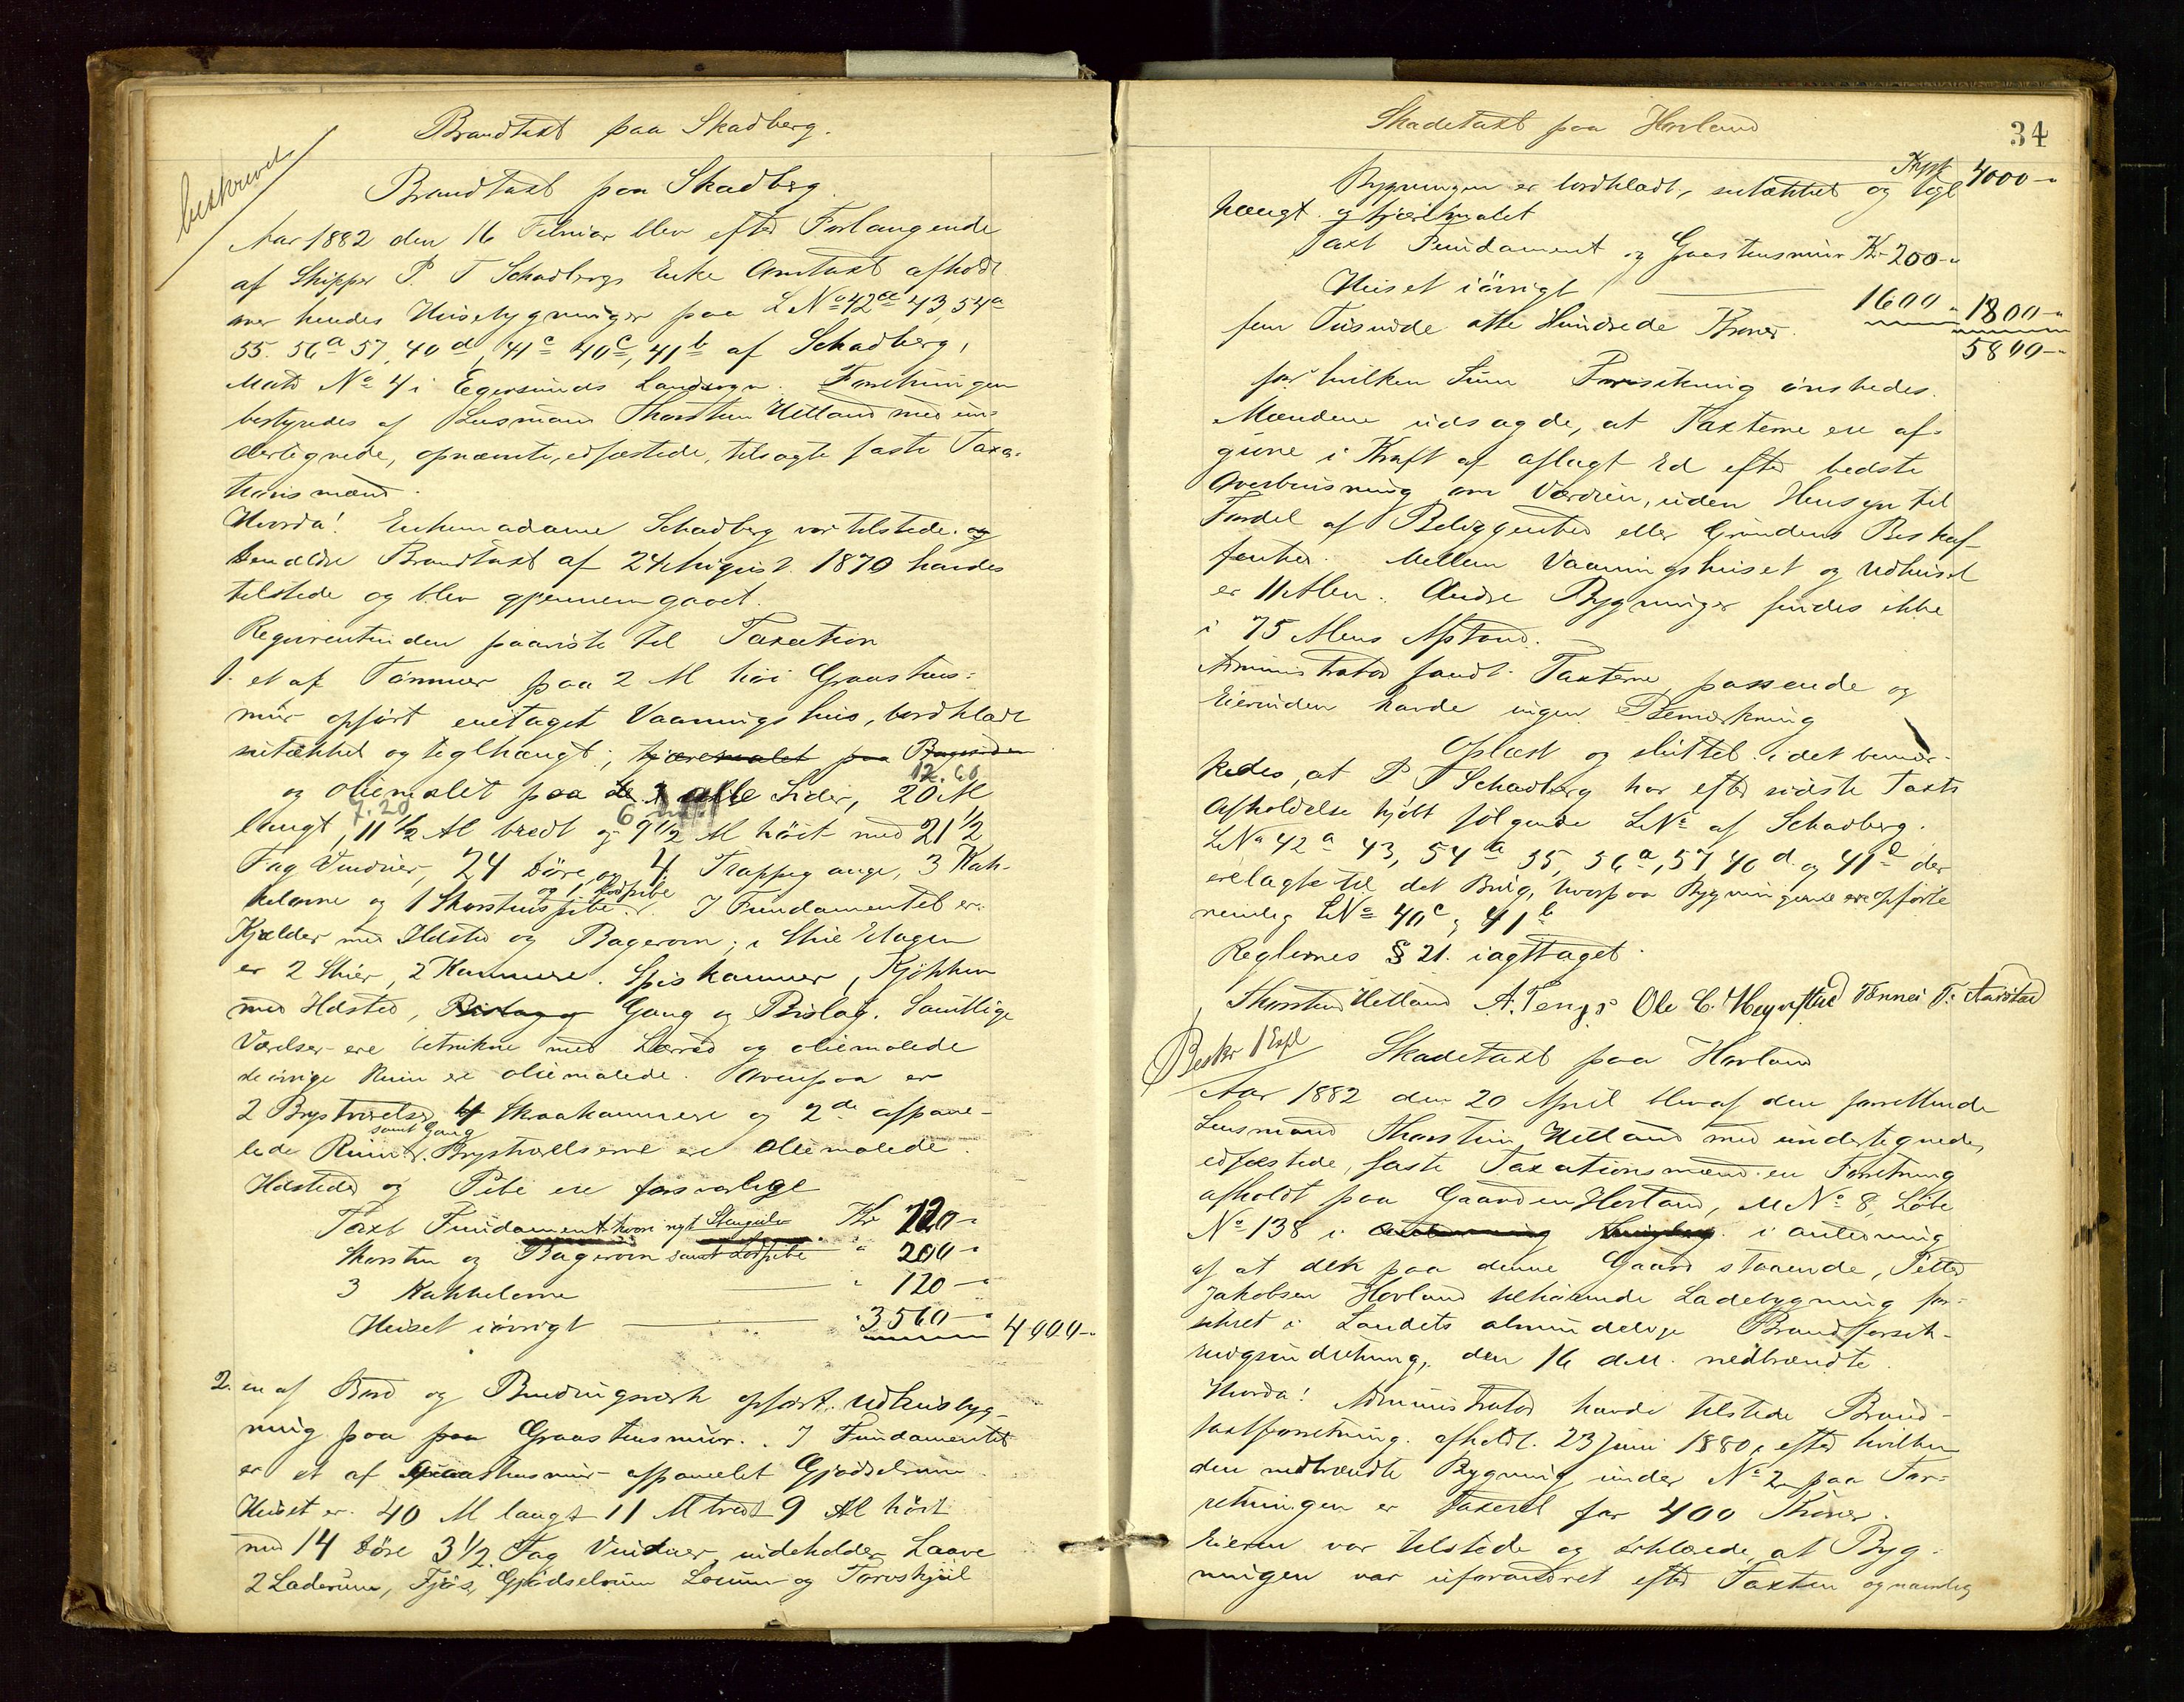 Brandtaxt paa Skadberg.
beskrevet
Brandtaxt paa Skadberg
Aar 1882 den 16 Februar blev efter Forlangende
af Skipper P. T Schadbergs Enke Omtaxt afholdt
over hendes Huusebygninger paa L No 42a 43, 54a
55. 56a 57, 40d, 41c 40c, 41b af Schadberg,
Matr No 4 i Egersunds Landsogn. Forretningen
bestyredes af Lensmand Thorsten Hetland med un-
dertegnede, opnævnte, edfæstede, tilsagte faste Taxa-
tionsmænd.
Hvorda! Enkemadame Schadberg var tilstede. og
den ældre Brandtaxt af 24 August 1870 havdes
tilstede og blev gjennemgaaet.
Requirentinden paaviste til Taxation
1. et af Tømmer paa 2 Al høi Graastens-
mur opført enetaget Vaaningshus, bordklædt
netækket og teglhængt; tjæremalet paa Bagsiden
12.60
og oliemalet paa de 3 alle Sider, 20 Al
7.20 6
langt, 11 1/2 Al bredt og 9 1/2 Al høit med 21 1/2
Fag Vinduer, 24 Døre og 4 Trappegange, 3 Kak-
og 1 Lodpibe
kelovne og 1 Skorstenspibe. I Fundamentet er
Kjælder med Ildsted og Bagerovn; i 1ste Etagen
er 2 Stuer, 2 Kammere. Spiskammer, Kjøkken
med Ildsted, Bislag og Gang og Bislag. Samtlige
Værelser ere betrukne med Lærred og oliemalede
de øvrige Rum ere oliemalede. Ovenpaa er
2 Brystværelser 4 Skraakammere og 2de afpane-
samt Gang
lede Rum. Brystværelserne ere Oliemalede.
Ildsteder og Pibe ere forsvarlige
Taxt Fundament Kr 120-"
Skorsten og Bagerovn samt Lodpibe " 200-"
3 Kakkelovne " 120-"
Huset iøvrigt " 3560-" 4000-"
2. en af Bord og Bindingsværk opført Udhusbyg-
ning paa paa Graastensmur. I Fundamentet
er et af Graastensmur afpanelet Gjødselrum
Huset er 40 Al langt 11 Al bredt 9 Al høit
med 14 Døre 3 1/2 Fag Vinduer indeholder Laave
2 Laderum, Fjøs, Gjødselrum Locum og Torvskjul
Skadetaxt paa Hovland
34
4000-"
Bygningen er bordklædt, netækket og tegl
hængt og tjæremalet
Taxt Fundament og Graastensmur Kr 200-"
Huset iøvrigt 1600 " 1800-"
fem Tusinde otte Hundrede Kroner. 5800-"
for hvilken Sum Forsikring ønskedes.
Mændene udsagde, at Taxterne ere af-
givne i Kraft af aflagt Ed efter bedste
Overbevisning om Værdien, uden Hensyn til
Fordel af Beliggenhed eller Grundens Beskaf-
fenhed. Mellem Vaaningshuset og Udhuset
er 11 Alen. Andre Bygninger findes ikke
i 75 Alens Afstand.
Administrator fandt Taxterne passende og
Eierinden havde ingen Bemærkning
Oplæst og sluttet idet bemær-
kedes, at P T Schadberg har efter sidste Taxts
Afholdelse kjøbt følgende L No af Schadberg.
L No 42a 43, 54a 55, 56a, 57, 40d og 41c der
ere lagte til det Brug, hvorpaa Bygningerne ere opførte
nemlig L No 40c og 41b
Reglernes § 21. iagttaget.
Thorsten Hetland A. Tengs Ole C. Tønnes T. Aarstad
Beskr 1 Expl
Skadetaxt paa Hovland
Aar 1882 den 20 April blev af den forrettende
Lensmand Thorsten Hetland med undertegnede,
edfæstede, faste Taxationsmænd en Forretning
afholdt paa Gaarden Hovland, M No 8, Løbe
No 138 i i anledning
af at den paa denne Gaard staaende, Petter
Jakobsen Hovland tilhørende Ladebygning for-
sikret i Landets almindelige Brandforsik-
ringsindretning, den 16 d.M. nedbrændte.
Hvorda! Administrator havde tilstede Brand-
taxtforretning afholdt 23 Juni 1880, efter hvilken
den nedbrændte Bygning under No 2 paa For-
retningen er taxeret for 400 Kroner.
Eieren var tilstede og erklærede, at Byg-
ningen var uforandret efter Taxten og nemlig